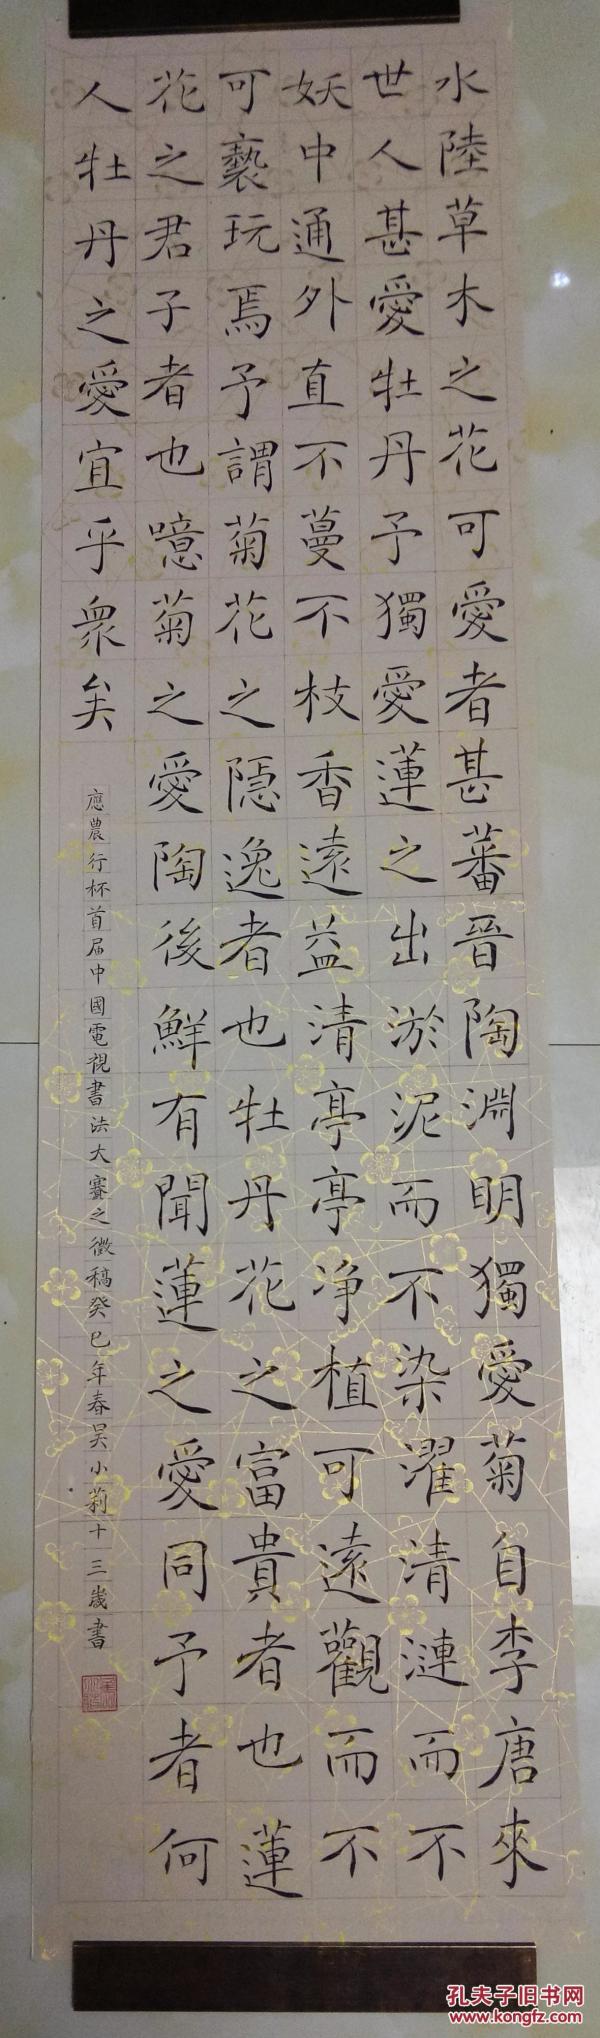 水陸草木之花可愛者甚蕃晉陶淵明獨愛菊自李唐來
世人甚愛牡丹予獨愛蓮之出淤泥而不染濯清漣而不
妖中通外直不蔓不枝香遠益清亭亭净植可遠觀而不
可褻玩焉予謂菊花之隱逸者也牡丹花之富貴者也蓮
花之君子者也噫菊之愛陶後鮮有聞蓮之愛同予者何
人牡丹之愛宜乎衆矣
應農行杯首届中國電視書法大賽之徵稿癸巳年春吴小莉十三歲書
孔夫子旧书网
www.kongfz.com